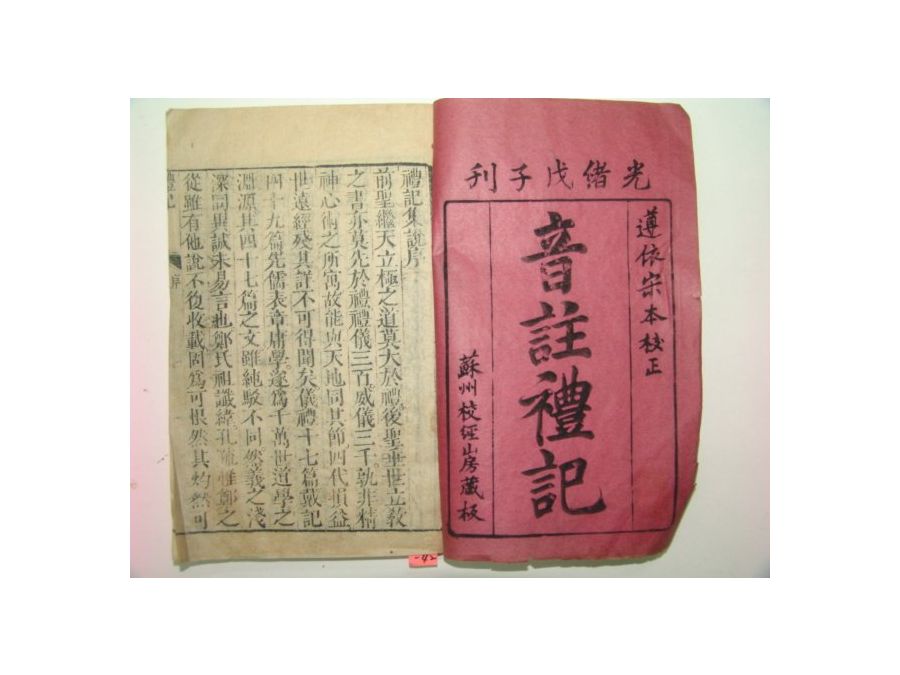 光緒戊子刋
遵依宋本校正
音註禮記
蘇州校經山房藏板
禮記集說序
前聖繼天立極之道莫大於禮後聖垂世立教
之書亦莫先於禮禮儀三百威儀三千孰非精
神心術之所寓故能與天地同其節四代損益
世遠經殘其詳不可得聞矣儀禮十七篇戴記
四十九篇先儒表章庸學遂爲千萬世道學之
淵源其四十七篇之文雖純駁不同然義之淺
深同異誠未易言也鄭氏祖讖緯孔疏惟鄭之
從雖有他說不復收載固爲可恨然其灼然可
禮記
序
-42